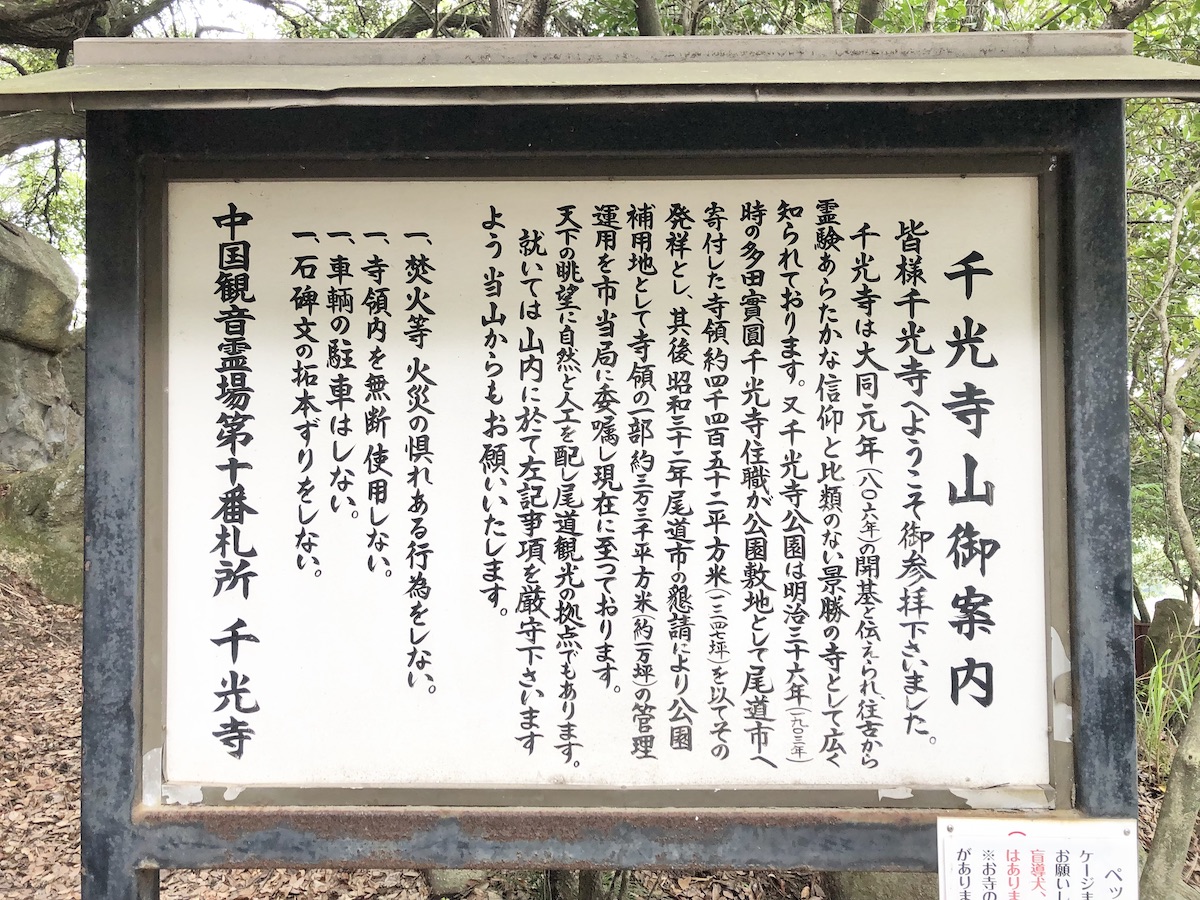 千光寺山御案内
皆様千光寺へようこそ御参拝下さいました。
千光寺は大同元年(八〇六年)の開基と伝えられ、往古から
霊験あらたかな信仰と比類のない景勝の寺として広く
知られております。又千光寺公園は明治三十六年(一九〇三年)
時の多田實圓千光寺住職が公園敷地として尾道市へ
寄付した寺領約四千四百五十二平方米(一三四七坪)を以てその
発祥とし、其後昭和三十二年尾道市の懇請により公園
補用地として寺領の一部約三万三千平方米(約一万坪)の管理
運用を市当局に委嘱し現在に至っております。
天下の眺望に自然と人工を配し尾道観光の拠点でもあります。
就いては山内に於て左記事項を厳守下さいます
よう当山からもお願いいたします。
一、焚火等 火災の惧れある行為をしない。
一、寺領内を無断使用しない。
一、車輌の駐車はしない。
一、石碑文の拓本ずりをしない。
中国観音霊場第十番札所 千光寺
ペッ
ケージま
お願いし
(
盲導犬、
はありま
※お寺の
がありま